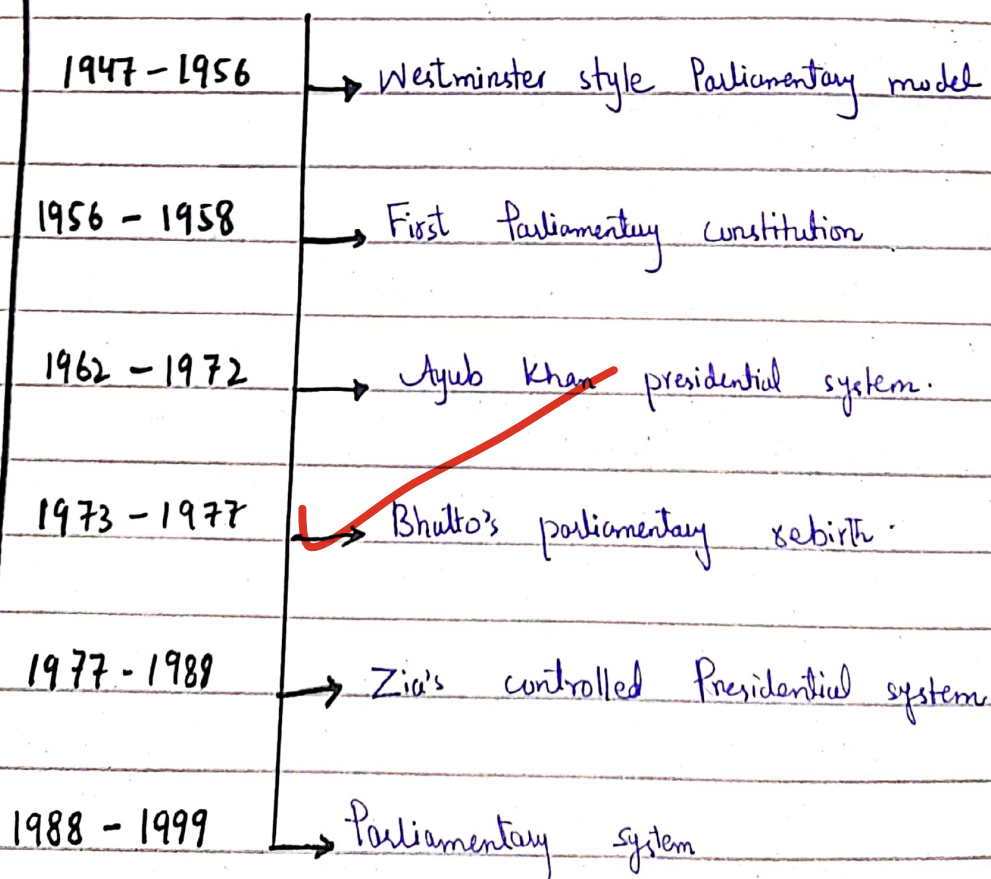 1947 - 1956 → Westminster style Parliamentary model
1956 - 1958 → First Parliamentary constitution
1962 - 1972 → Ayub Khan presidential system.
1973 - 1977 → Bhutto's parliamentary rebirth.
1977 - 1988 → Zia's controlled Presidential system
1988 - 1999 → Parliamentary system